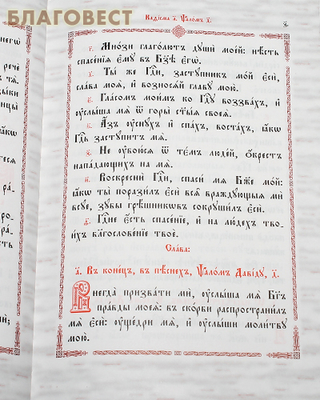 БЛАГОВЕСТ
Каѳісма а҃. Ѱаломъ г҃.
г҃. Мно́зи глаго́лютъ дꙋшѝ мое́й: нѣ́сть
спасе́нїѧ є҆мꙋ̀ въ бз҃ѣ є҆гѡ̀.
д҃. Ты́ же гдⷭ҇и, застꙋ́пникъ мо́й є҆сѝ,
сла́ва моѧ̀, и҆ возносѧ́й главꙋ̀ мою̀.
є҃. Гла́сомъ мои́мъ ко гдⷭ҇ꙋ воззва́хъ, и҆
ᲂу҆слы́ша мѧ̀ ѿ горы̀ ст҃ы́ѧ своеѧ̀.
ѕ҃. А҆́зъ ᲂу҆снꙋ́хъ и҆ спа́хъ, воста́хъ, ꙗ҆́кѡ
гдⷭ҇ь застꙋ́питъ мѧ̀.
з҃. Не ᲂу҆бою́сѧ ѿ те́мъ люде́й, ѡ҆́крестъ
напа́дающихъ на мѧ̀.
и҃. Воскре́сни гдⷭ҇и, спаси́ мѧ бж҃е мо́й:
ꙗ҆́кѡ ты̀ порази́лъ є҆сѝ всѧ̑ враждꙋ́ющыѧ мѝ
всꙋ́е, зꙋ́бы грѣ́шникѡвъ сокрꙋши́лъ є҆сѝ.
ѳ҃. Гдⷭ҇не є҆́сть спасе́нїе, и҆ на лю́дехъ тво-
и́хъ блгⷭ҇ове́нїе твоѐ.
Сла́ва:
а҃. Въ коне́цъ, въ пѣ́снехъ, ѱало́мъ даві́дꙋ, д҃.
Внегда̀ призва́ти мѝ, ᲂу҆слы́ша мѧ̀ бг҃ъ
пра́вды моеѧ̀: въ ско́рби распространи́лъ
мѧ̀ є҆сѝ: ᲂу҆ще́дри мѧ̀, и҆ ᲂу҆слы́ши моли́твꙋ
мою̀.